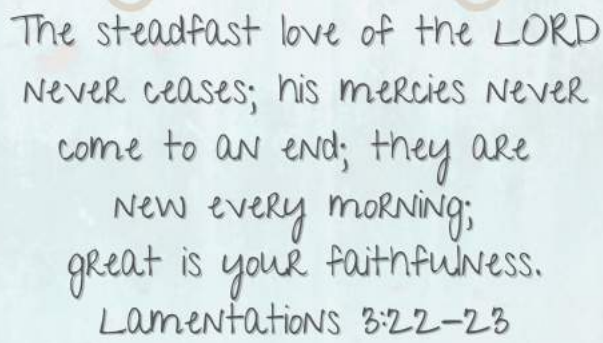 The steadfast love of the LORD
never ceases; his mercies never
come to an end; they are
new every morning;
great is your faithfulness.
Lamentations 3:22-23